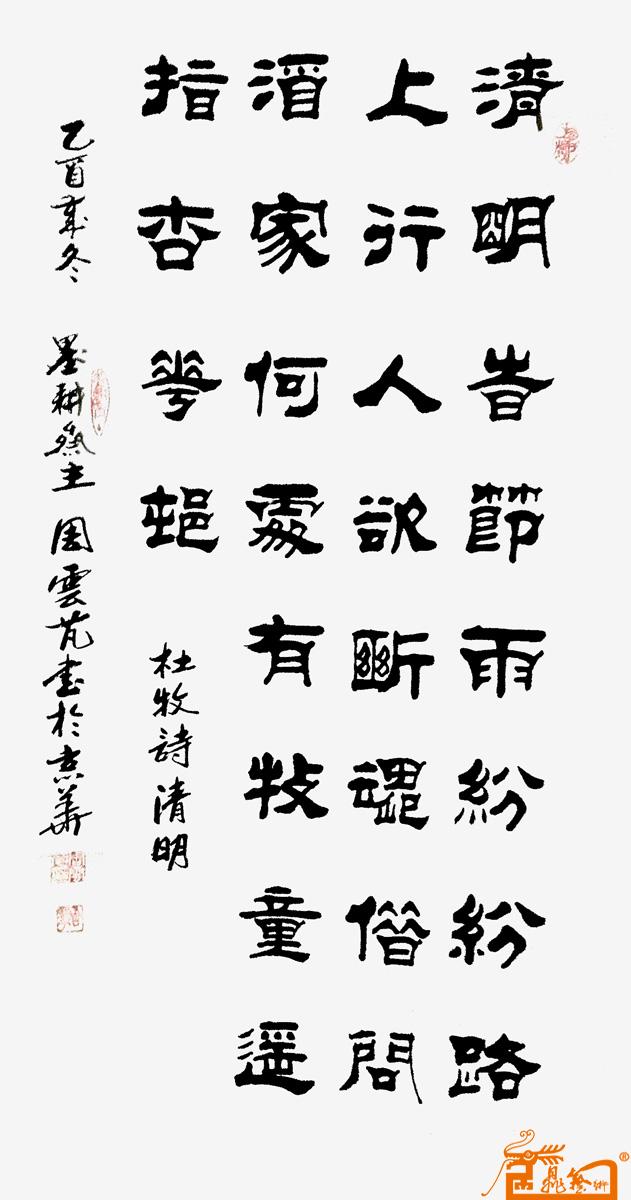 清明旹節雨紛紛路
上行人欲斷魂借問
酒家何處有牧童遥
指杏華邨
杜牧詩清明
乙酉歲冬 墨耕齋主 周雲芃書於京華